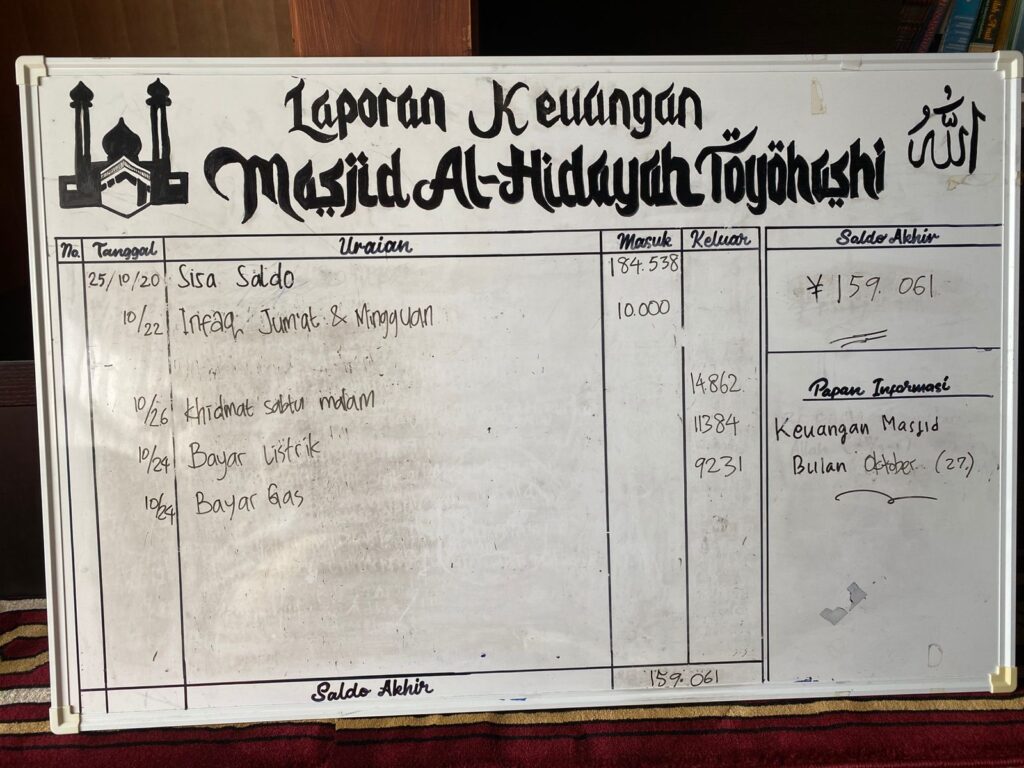 Laporan Keuangan
Masjid Al-Hidayah Toyohashi
الله
No. Tanggal Uraian Masuk Keluar
25/10/20 Sisa Saldo 184.538
10/22 Infaq Jum'at & Mingguan 10.000
10/26 Khidmat sabtu malam 14862
10/24 Bayar Listrik 11384
10/24 Bayar Gas 9231
Saldo Akhir 159.061
Saldo Akhir
¥ 159.061
Papan Informasi
Keuangan Masjid
Bulan Oktober (27)